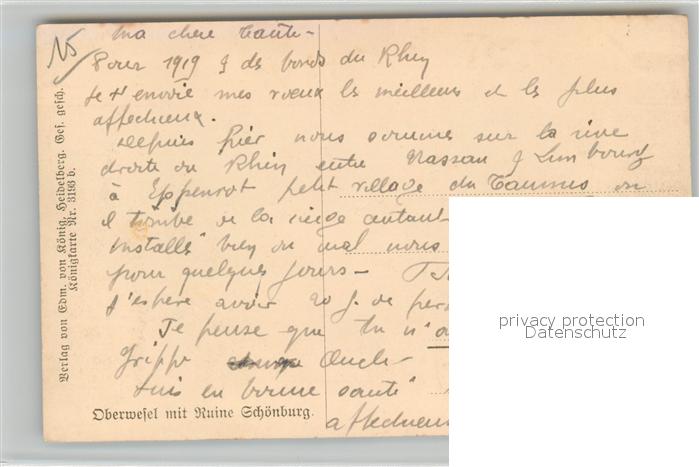 Ma chère Tante -
Pour 1919 & des bords du Rhin
je t'envoie mes voeux les meilleurs et les plus
affectueux.
Depuis hier nous sommes sur la rive
droite du Rhin entre Nassau & Limbourg
à Eppenrot petit village du Taunus où
il tombe de la neige autant
Installés bien ou mal nous
pour quelques jours -
J'espère avoir 20 j. de per
Je pense que tu n'a
Grippe Oncle -
suis en bonne santé
affectueu
Oberwesel mit Ruine Schönburg.
Verlag von Edm. von König, Heidelberg. Ges. gesch.
Königkarte Nr. 3193 b.
privacy protection
Datenschutz